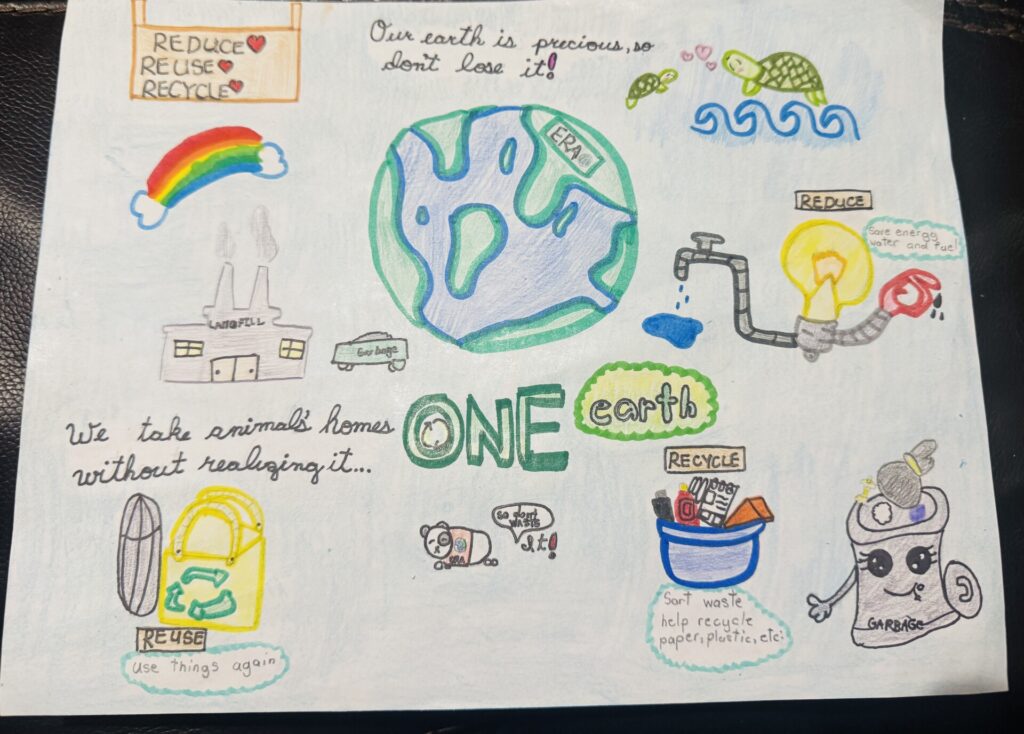 REDUCE
REUSE
RECYCLE
Our earth is precious, so
don't lose it!
ERA
REDUCE
Save energy
water and fuel
LANDFILL
Garbage
ONE
earth
We take animal's homes
without realizing it...
RECYCLE
So don't
WASTE
It!
ERA
Sort waste
help recycle
paper, plastic, etc.
GARBAGE
REUSE
Use things again